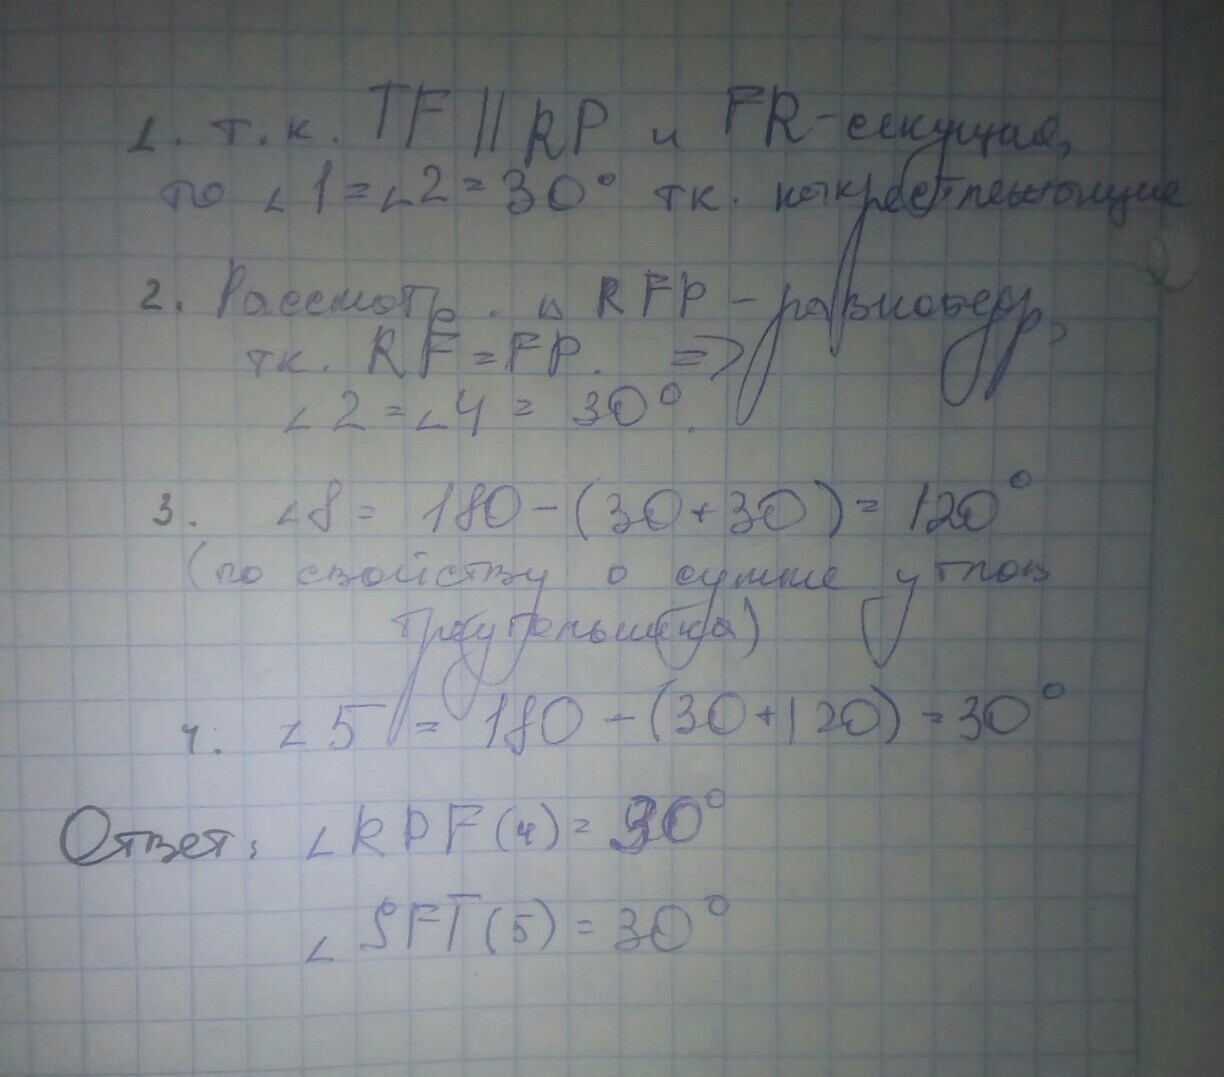 1. т.к. TF || RP и FR-секущая,
то ∠1=∠2=30° тк. накрестлежащие
2. Рассмотр. △ RFP - равнобедр,
тк. RF=FP. =>
∠2=∠4= 30°.
3. ∠8= 180-(30+30)= 120°
(по свойству о сумме углов
треугольника)
4. ∠5 = 180-(30+120)=30°
Ответ: ∠RPF(4)= 30°
∠SFT(5)=30°